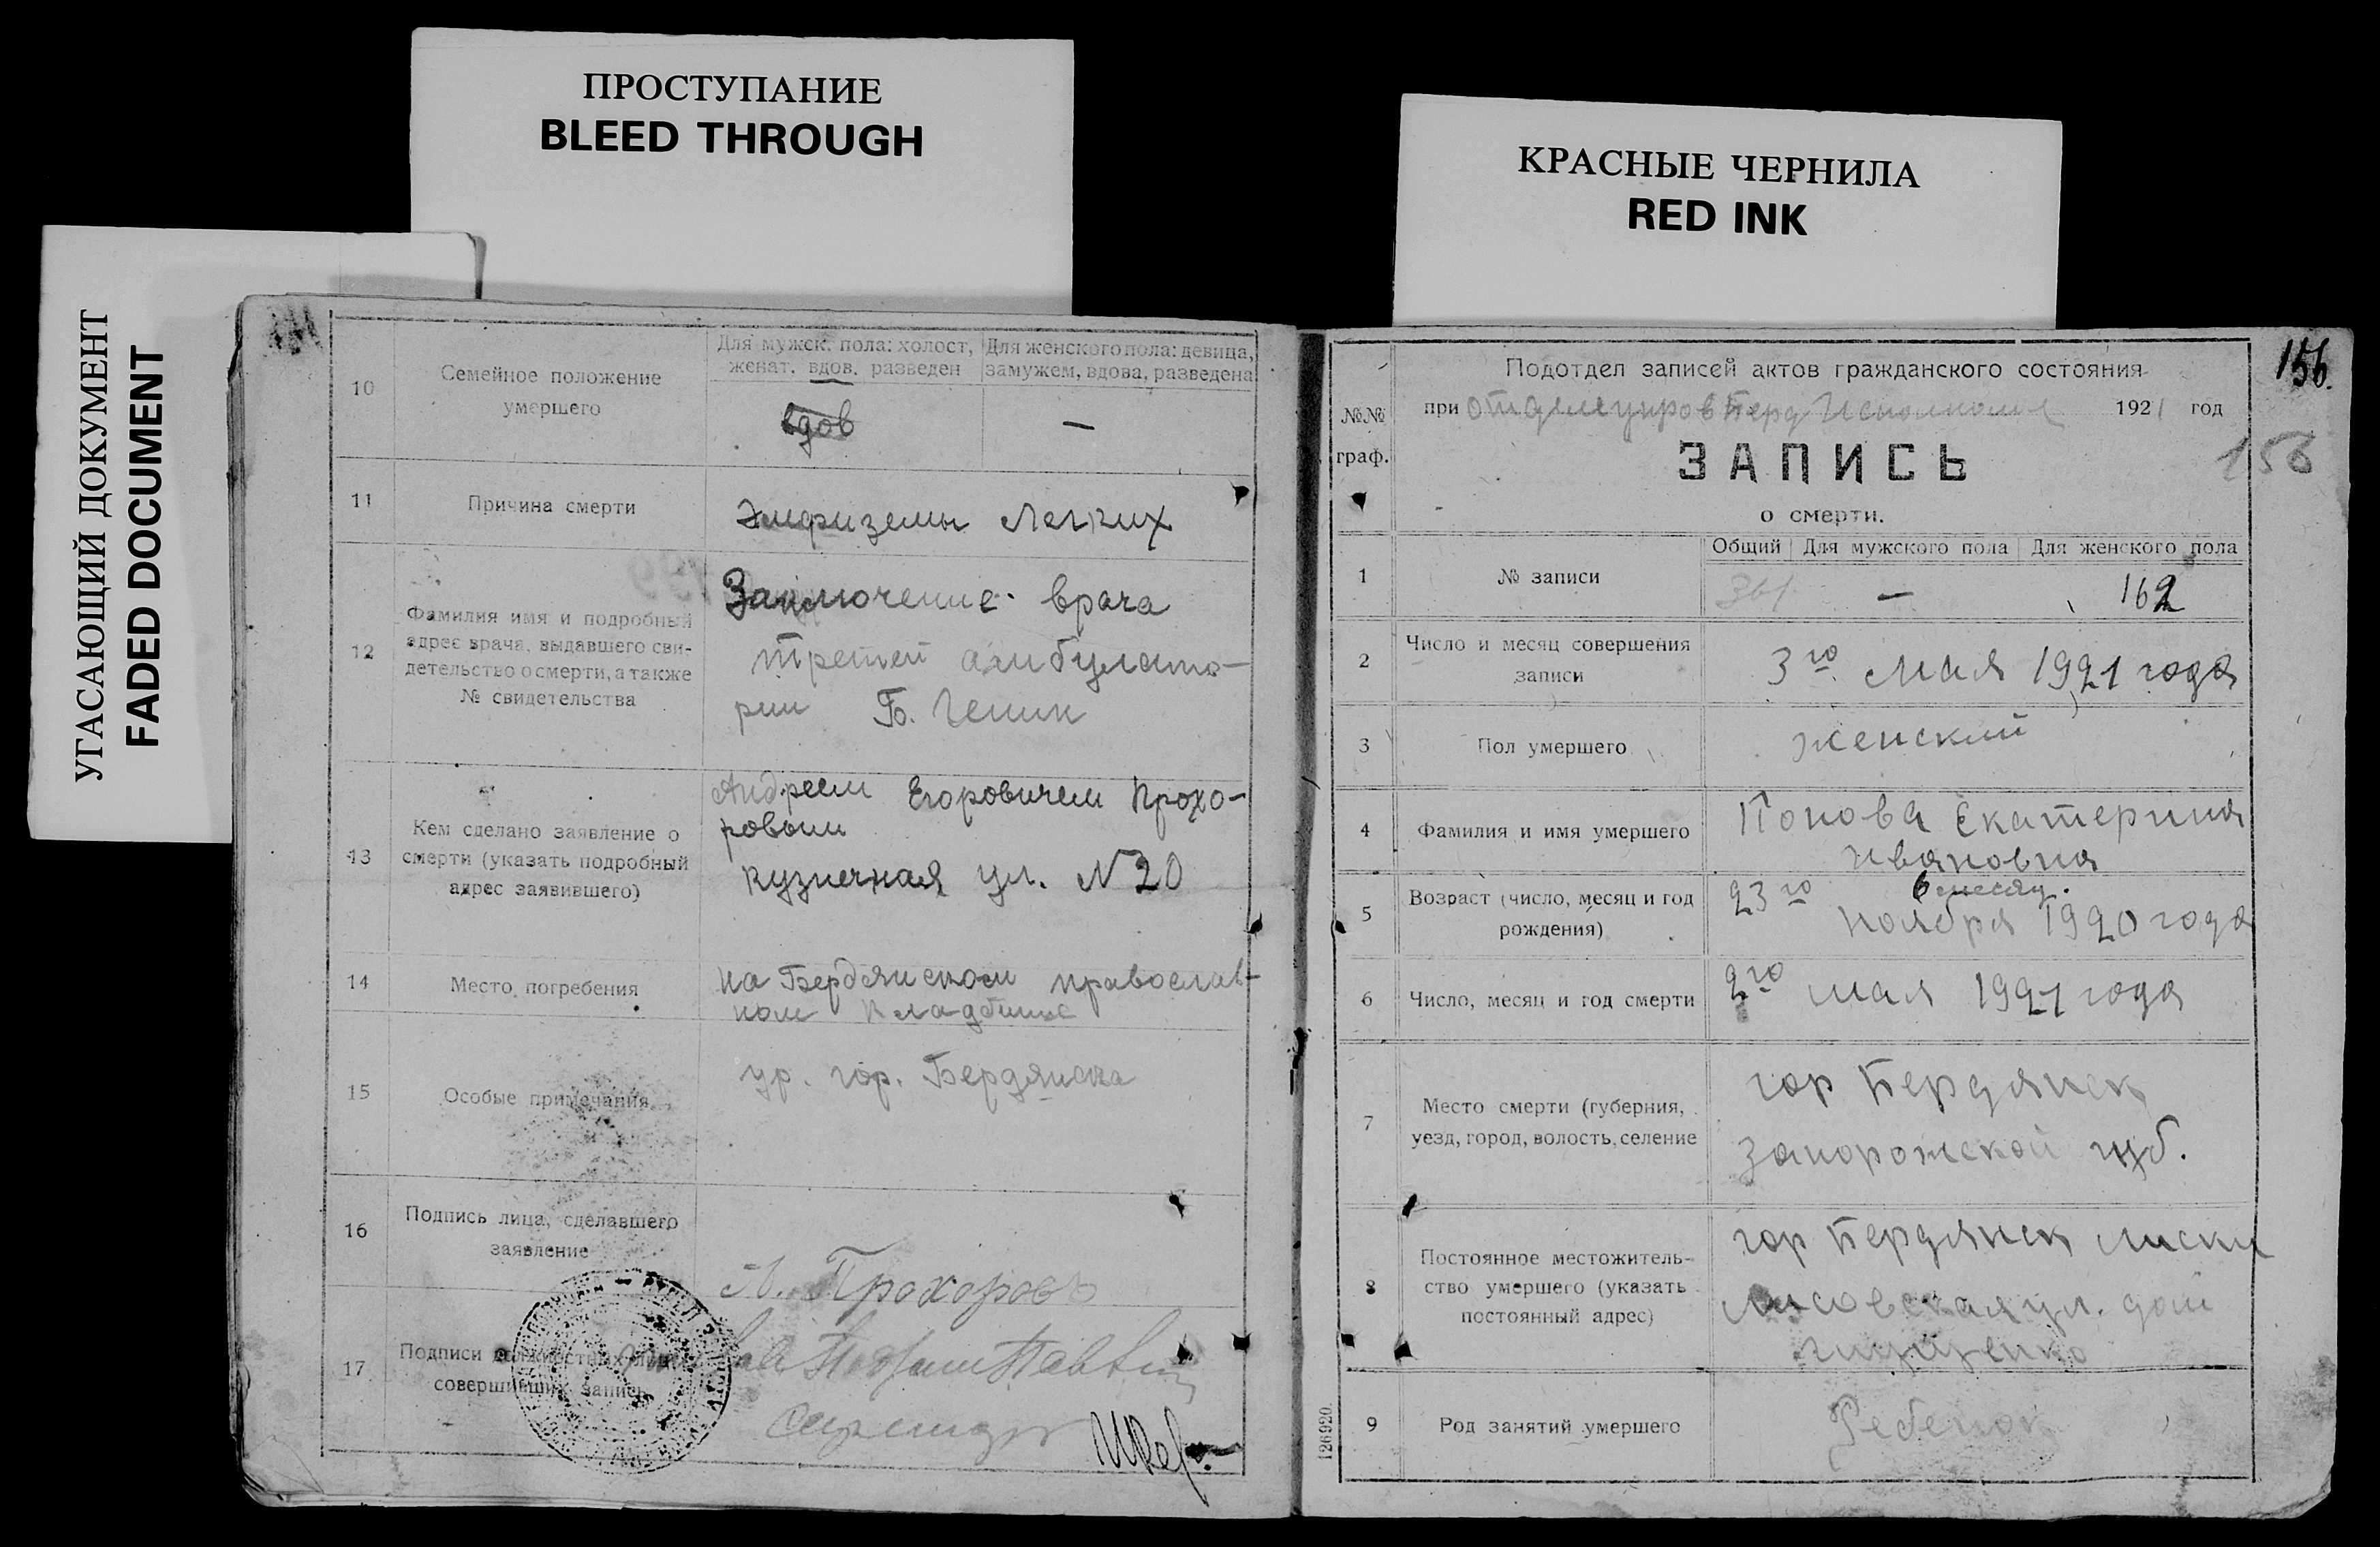 ПРОСТУПАНИЕ
BLEED THROUGH
КРАСНЫЕ ЧЕРНИЛА
RED INK
УГАСАЮЩИЙ ДОКУМЕНТ
FADED DOCUMENT
10
Семейное положение
умершего
Для мужск. пола: холост,
женат, вдов, разведен
Для женского пола: девица,
замужем, вдова, разведена
вдов
—
11
Причина смерти
эмфиземы легких
12
Фамилия имя и подробный
адрес врача, выдавшего сви-
детельство о смерти, а также
№ свидетельства
Заключение врача
третей амбулато-
рии Б.
13
Кем сделано заявление о
смерти (указать подробный
адрес заявившего)
Андреем Егоровичем Прохо-
ровым
кузнечная ул. N 20
14
Место погребения
на Бердянском православ-
ном кладбище
15
Особые примечания
ур. гор. Бердянска
16
Подпись лица, сделавшего
заявление
А. Прохоровъ
17
Подписи должностных лиц,
совершивших запись
156.
№№
граф.
Подотдел записей актов гражданского состояния
при 1921 год
156
ЗАПИСЬ
о смерти.
1
№ записи
Общий
Для мужского пола
Для женского пола
361
—
162
2
Число и месяц совершения
записи
3го мая 1921 года
3
Пол умершего
женский
4
Фамилия и имя умершего
Попова Екатерина
Ивановна
5
Возраст (число, месяц и год
рождения)
6 месяц.
23го ноября 1920 года
6
Число, месяц и год смерти
2го мая 1921 года
7
Место смерти (губерния,
уезд, город, волость, селение
гор Бердянск
Запорожской губ.
8
Постоянное местожитель-
ство умершего (указать
постоянный адрес)
гор Бердянск лиски
лисовская ул. дом
9
Род занятий умершего
Ребенок
126920.